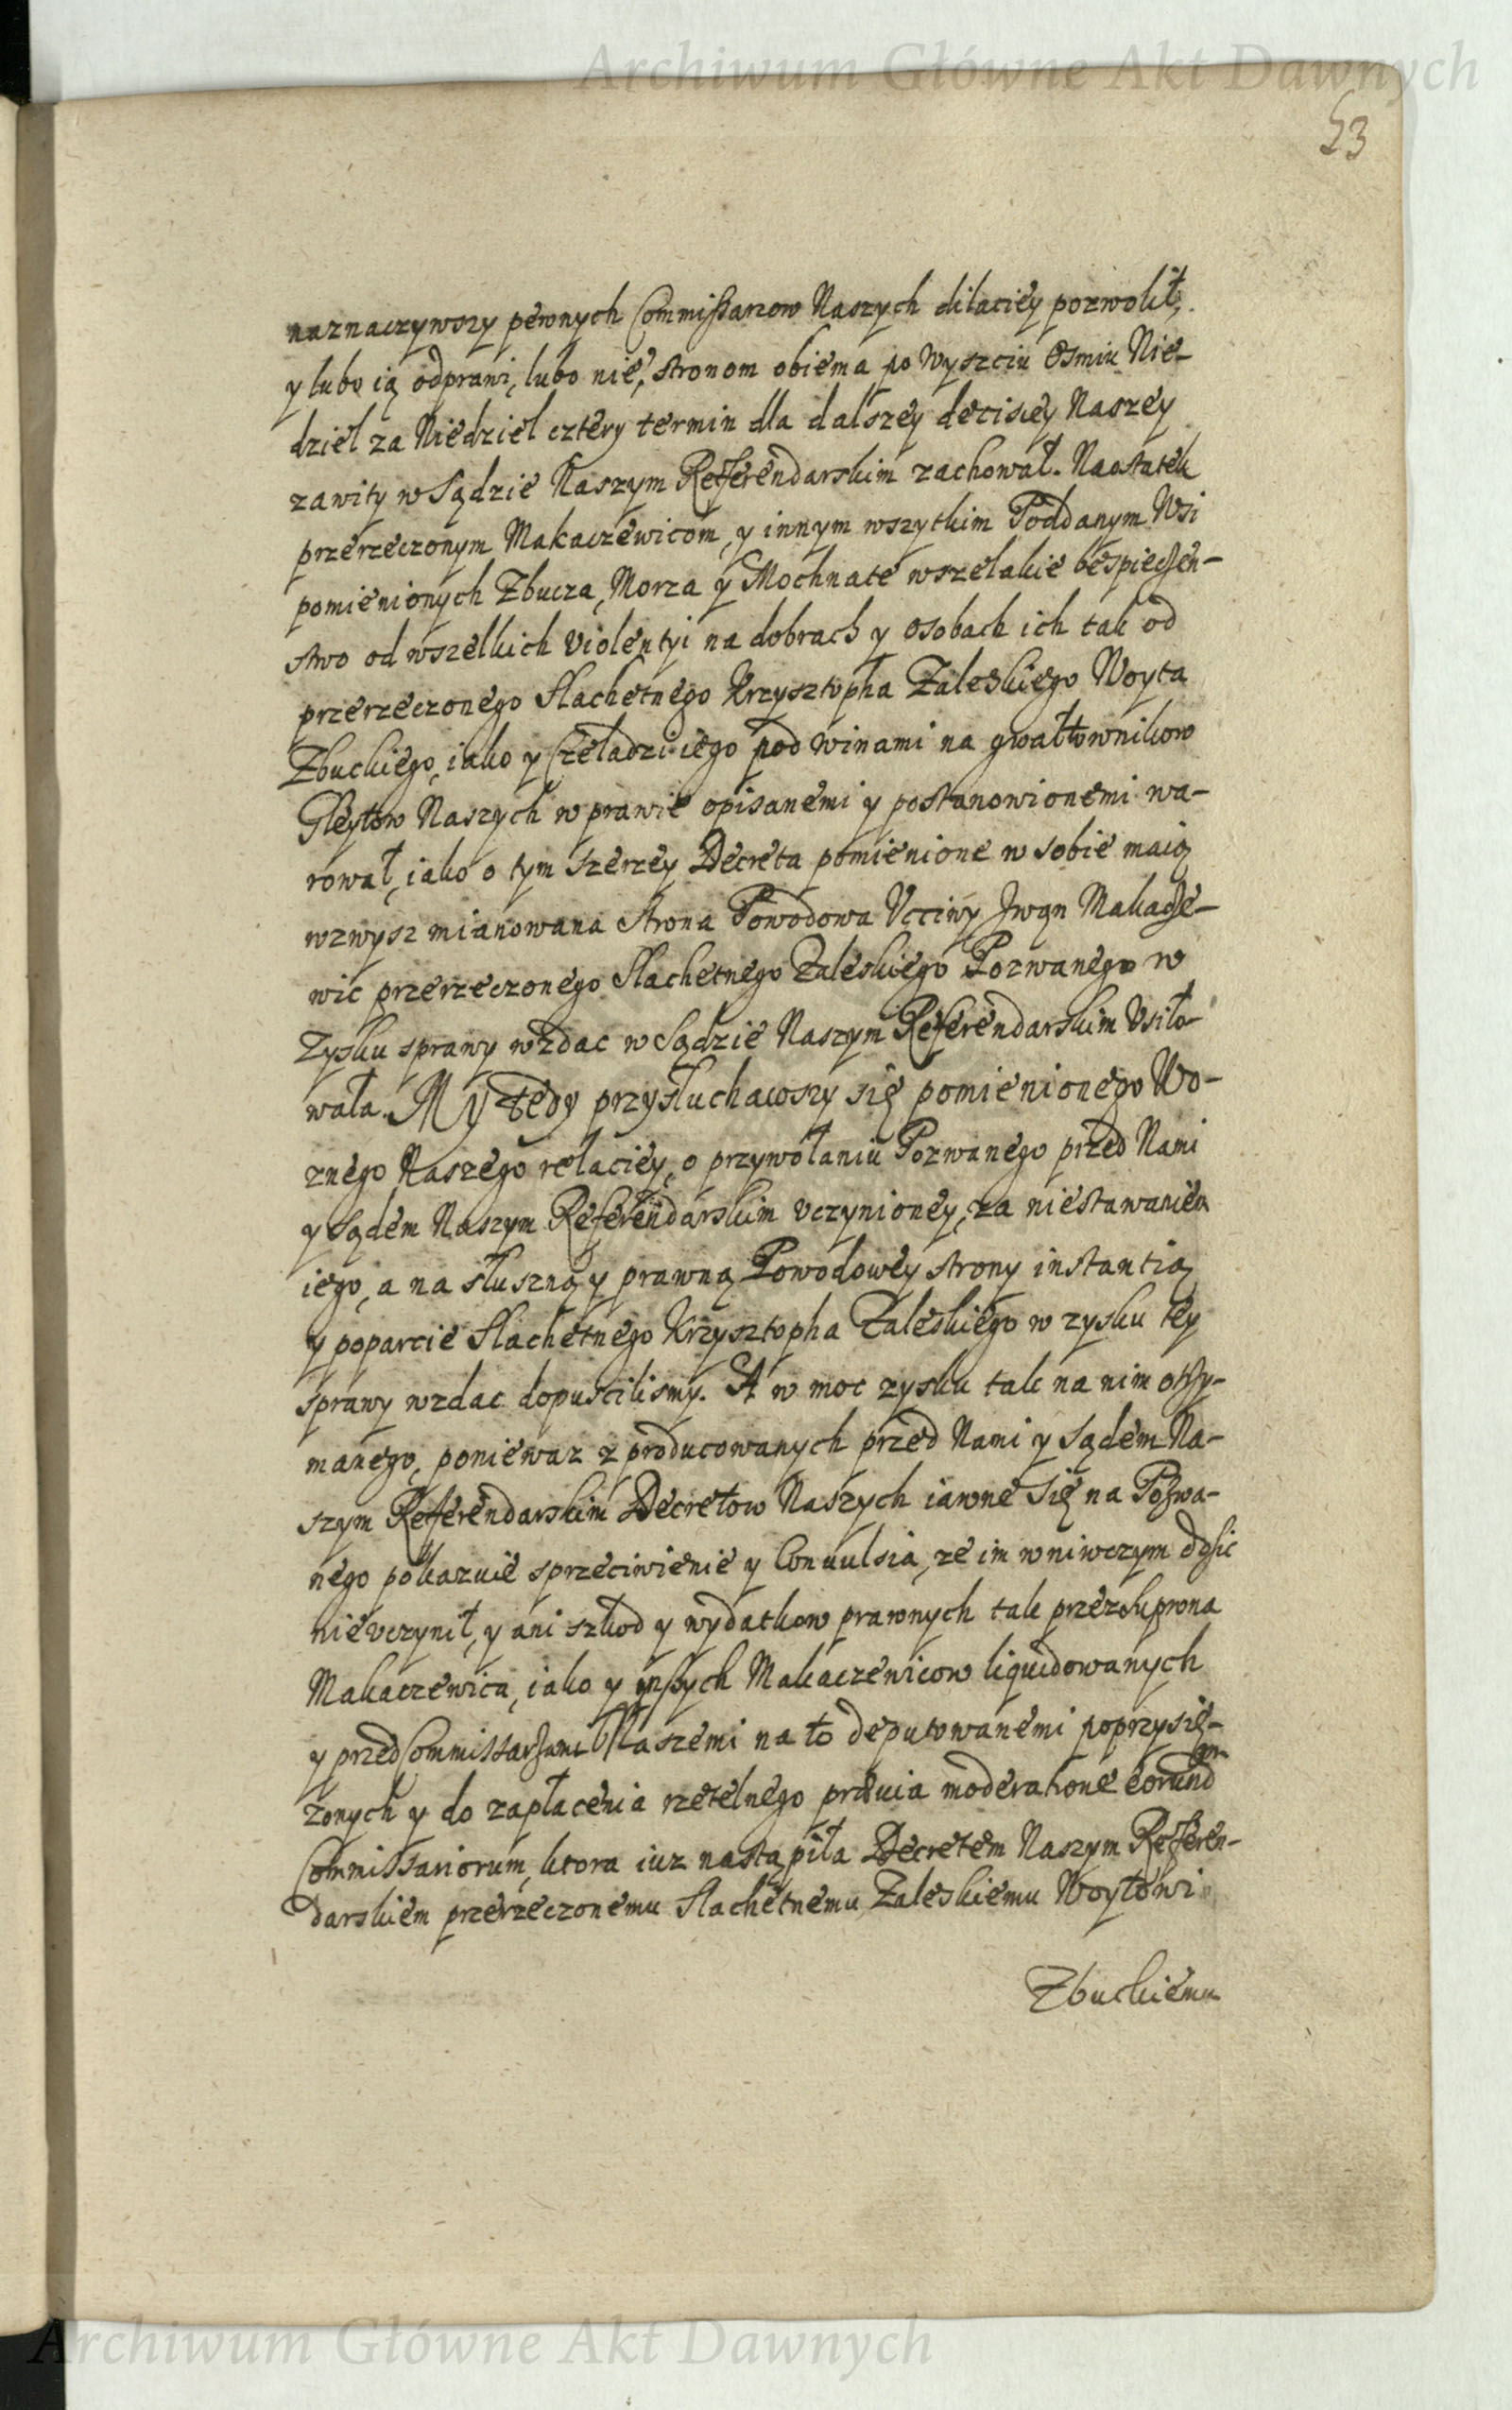 Archiwum Główne Akt Dawnych
53
naznaczywszy pewnych Commissarzow Naszych dilaciey pozwolił,
y lubo ią odprawi, lubo nie, stronom obiema po wyszciu Osmiu Nie-
dziel za Niedziel cztery termin dla dalszey decisiey Naszey
zawity w Sądzie Naszym Referendarskim zachował. Naostatek
przerzeczonym Makaczewicom, y innym wszytkim Poddanym Wsi
pomienionych Zbucza, Morza y Mochnate wszelakie bespieczen-
stwo od wszelkich violentyi na dobrach y osobach ich tak od
przerzeczonego Slachetnego Krzysztopha Zaleskiego Woyta
Zbuckiego, iako y Czeladzi iego pod winami na gwałtownikow
Gleytow Naszych w prawie opisanemi y postanowionemi wa-
rował, iako o tym szerzey Decreta pomienione w sobie maią
wzwysz mianowana Strona Powodowa Vcciwy Iwan Makacze-
wic przerzeczonego Slachetnego Zaleskiego Pozwanego w
Zysku sprawy wzdac w Sądzie Naszym Referendarskim Vsiło-
wała. My tedy przysłuchawszy się pomienionego Wo-
znego Naszego relaciey, o przywołaniu Pozwanego przed Nami
y Sądem Naszym Referendarskim vczynioney, za niestawaniem
iego, a na słuszną y prawną Powodowey strony instantią
y poparcie Slachetnego Krzysztopha Zaleskiego w zysku tey
sprawy wzdac dopuscilismy. A w moc zysku tak na nim otrzy-
manego, poniewaz z producowanych przed Nami y Sądem Na-
szym Referendarskim Decretow Naszych iawne się na Pozwa-
nego pokazuie sprzeciwienie y Convulsia, ze im wniwczym dosic
nievczynił, y ani szkod y wydatkow prawnych tak przez Kuprona
Makaczewica, iako y inszych Makaczewicow liquidowanych
y przed Commissarzami Naszemi na to deputowanemi poprzysię-
zonych y do zapłacenia rzetelnego prævia moderatione eorund
Commissariorum, ktora iuz nastąpiła Decretem Naszym Referen-
darskiem przerzeczonemu Slachetnemu Zaleskiemu Woytowi
Zbuckiemu
Archiwum Główne Akt Dawnych